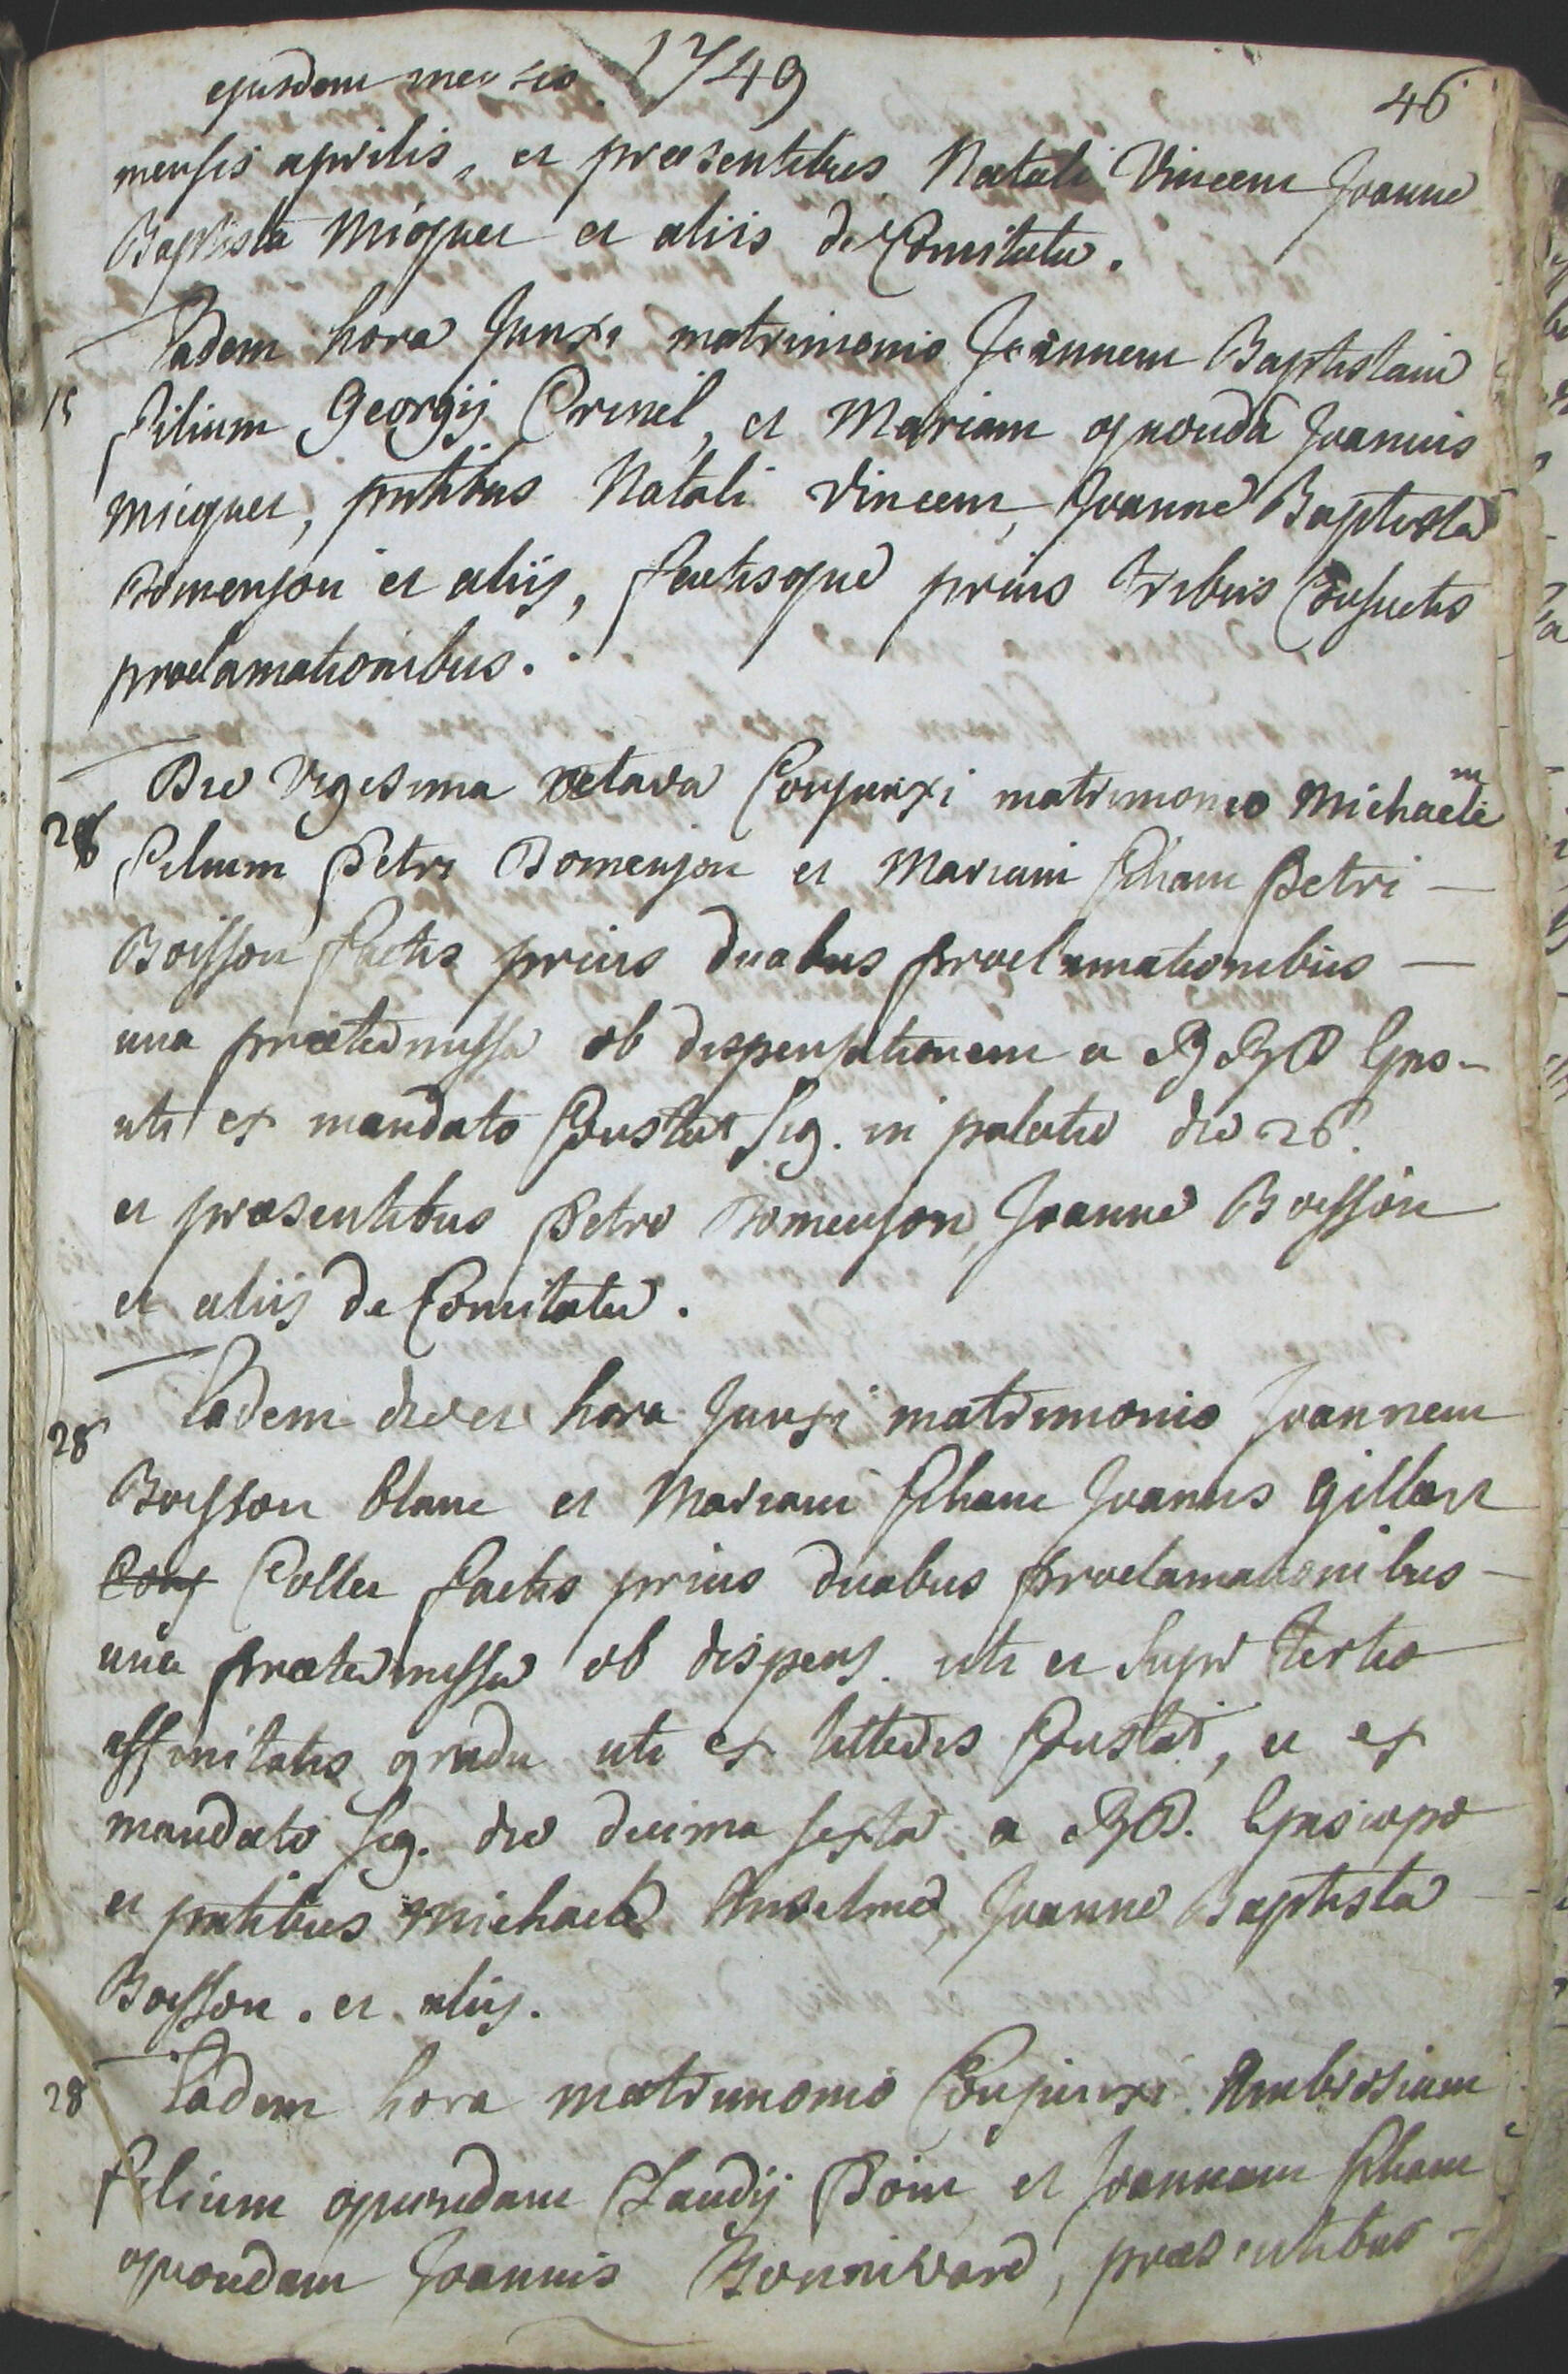 ejusdem mensis 1749
46
mensis aprilis, et præsentibus Natali Vincent Joanne
Baptista Miquet et aliis de Comitatu.
15
Eadem hora Junxi matrimonio Joannem Baptistam
filium Georgij Crinel, et Mariam quondā Joannis
Miquet, pntibus Natali Vincent, Joanne Baptista
Domenjon et alijs, factisque prius tribus Consuetis
proclamationibus.
28
Die Vigesima octava Conjunxi matrimonio Michaelem
filium Petri Domenjon et Mariam filiam Petri
Boisson factis prius duabus proclamationibus
una prætermissa ob dispensationem a RRD Epis-
uti ex mandato Constat sig. in palatio die 26
et præsentibus Petro Domenjon, Joanne Boisson
et alijs de Comitatu.
28
Eadem die et hora Junxi matrimonio Joannem
Boisson blanc et Mariam filiam Joannis gillart
Conj Collet factis prius duabus proclamationibus
una prætermissa ob dispens. uti et supr tertio
affinitatis gradu uti ex litteris Constat, et ex
mandato sig. die decima sexta a RD. Episcopo
et pntibus Michaele Anselme, Joanne Baptista
Boisson. et alijs.
28
Eadem hora matrimonio Conjunxi Ambrosium
filium quondam Claudij Doin et Joannam filiam
quondam Joannis Bonnivard, præsentibus